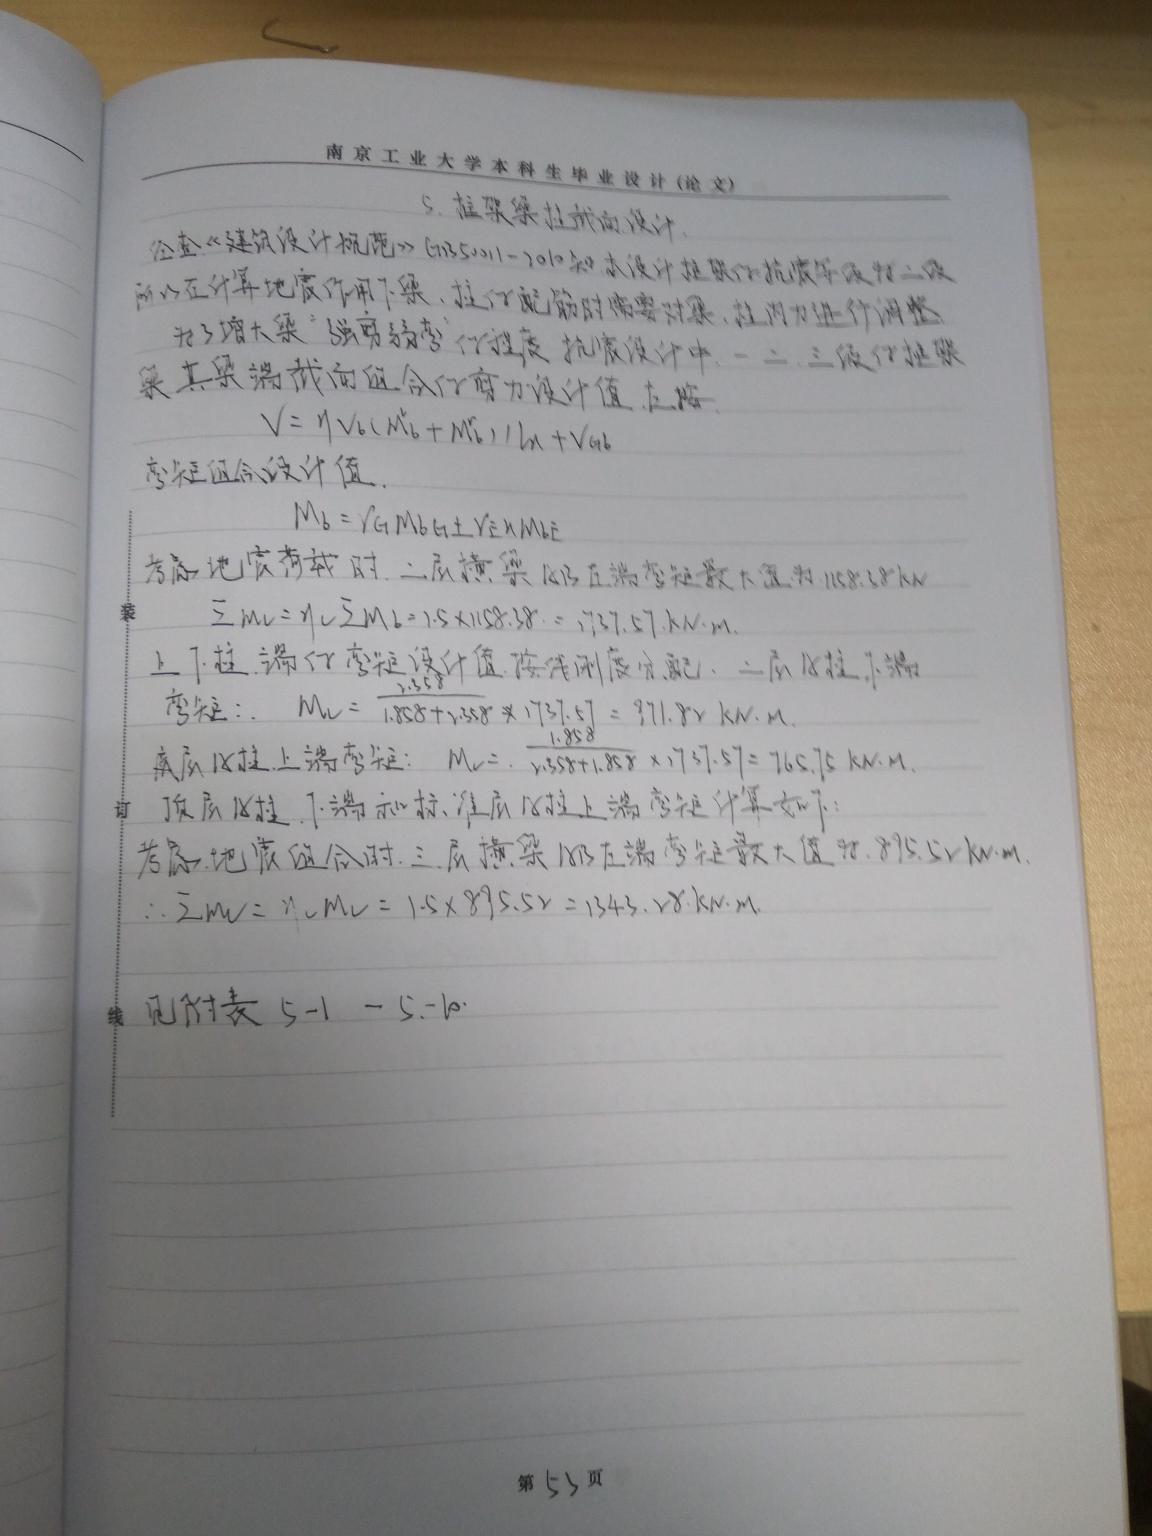 南京工业大学本科生毕业设计(论文)
5. 框架梁柱截面设计.
经查《建筑设计规范》GB50011-2010知本设计框架的抗震等级为二级
所以在计算地震作用下梁、柱的配筋时需要对梁、柱内力进行调整.
为了增大梁"强剪弱弯"的程度 抗震设计中.一 二 三级的框架
梁其梁端截面组合的剪力设计值.应按.
V=ηvb(Mlb+Mrb)/ln+VGb
弯矩组合设计值.
Mb=γGMbG±γEhMbE
考虑地震荷载时.二层横梁AB左端弯矩最大值为1158.38kN
ΣMc=ηcΣMb=1.5×1158.38=1737.57kN·m.
上下柱端的弯矩设计值按线刚度分配. 二层A柱下端
弯矩:. Mc= 2.358/1.858+2.358 × 1737.57 = 971.82 kN·m.
底层A柱上端弯矩: Mc= 1.858/2.358+1.858 ×1737.57= 765.75 kN·m.
顶层A柱下端和标准层A柱上端弯矩计算如下:
考虑地震组合时.三层横梁AB左端弯矩最大值为.895.52kN·m.
∴ΣMc=ηcMc=1.5×895.52=1343.28kN·m.
见附表 5-1 - 5-10.
装
订
线
第53页